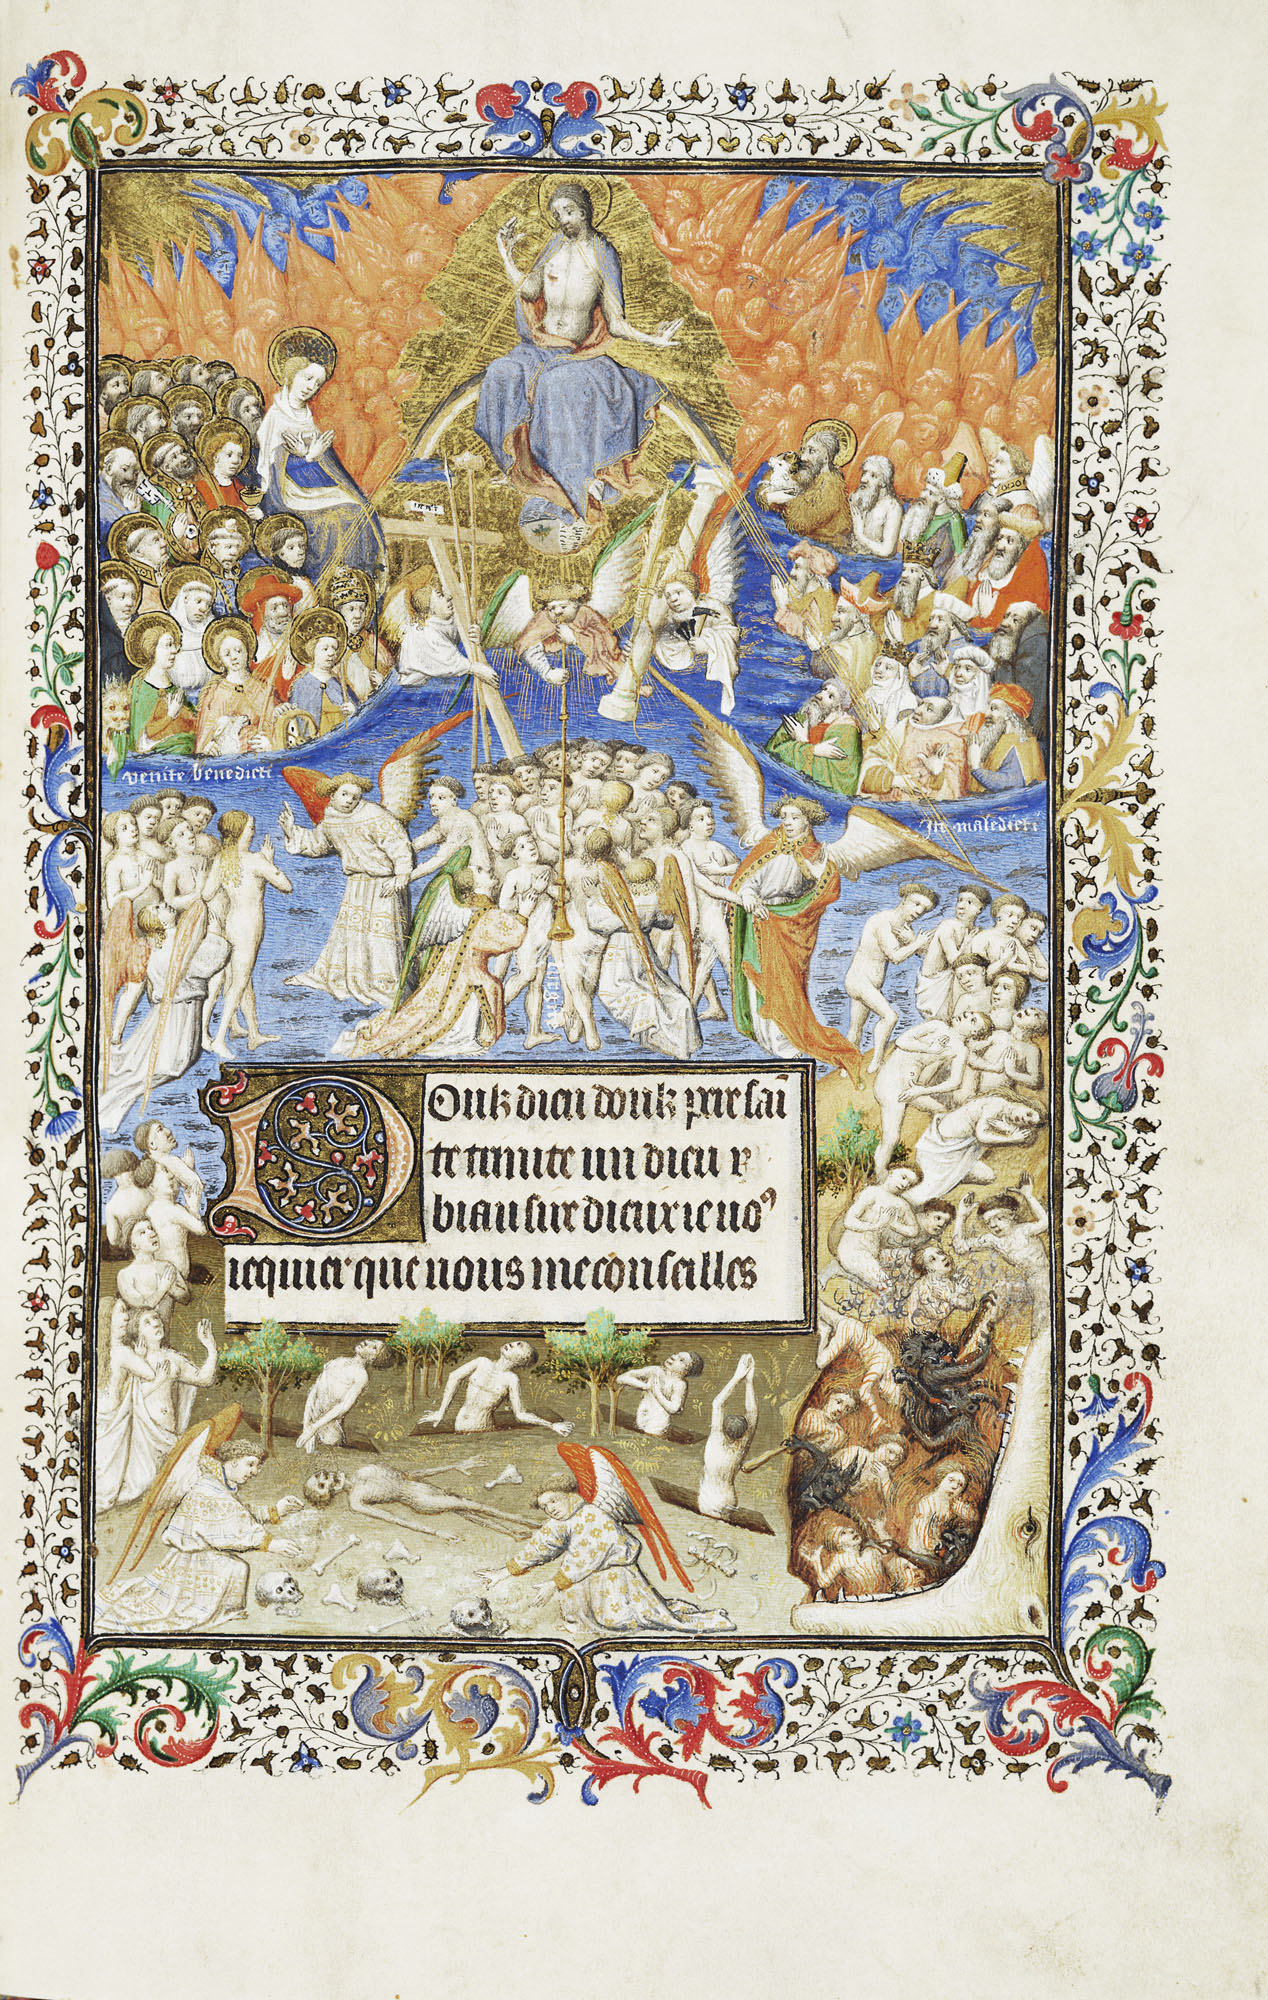 venite benedicti
Ite maledicti
Doulz dieu doulz pere sai
te trinite un dieu
biau sire dieux ie uoꝰ
requier que nous me conseilles